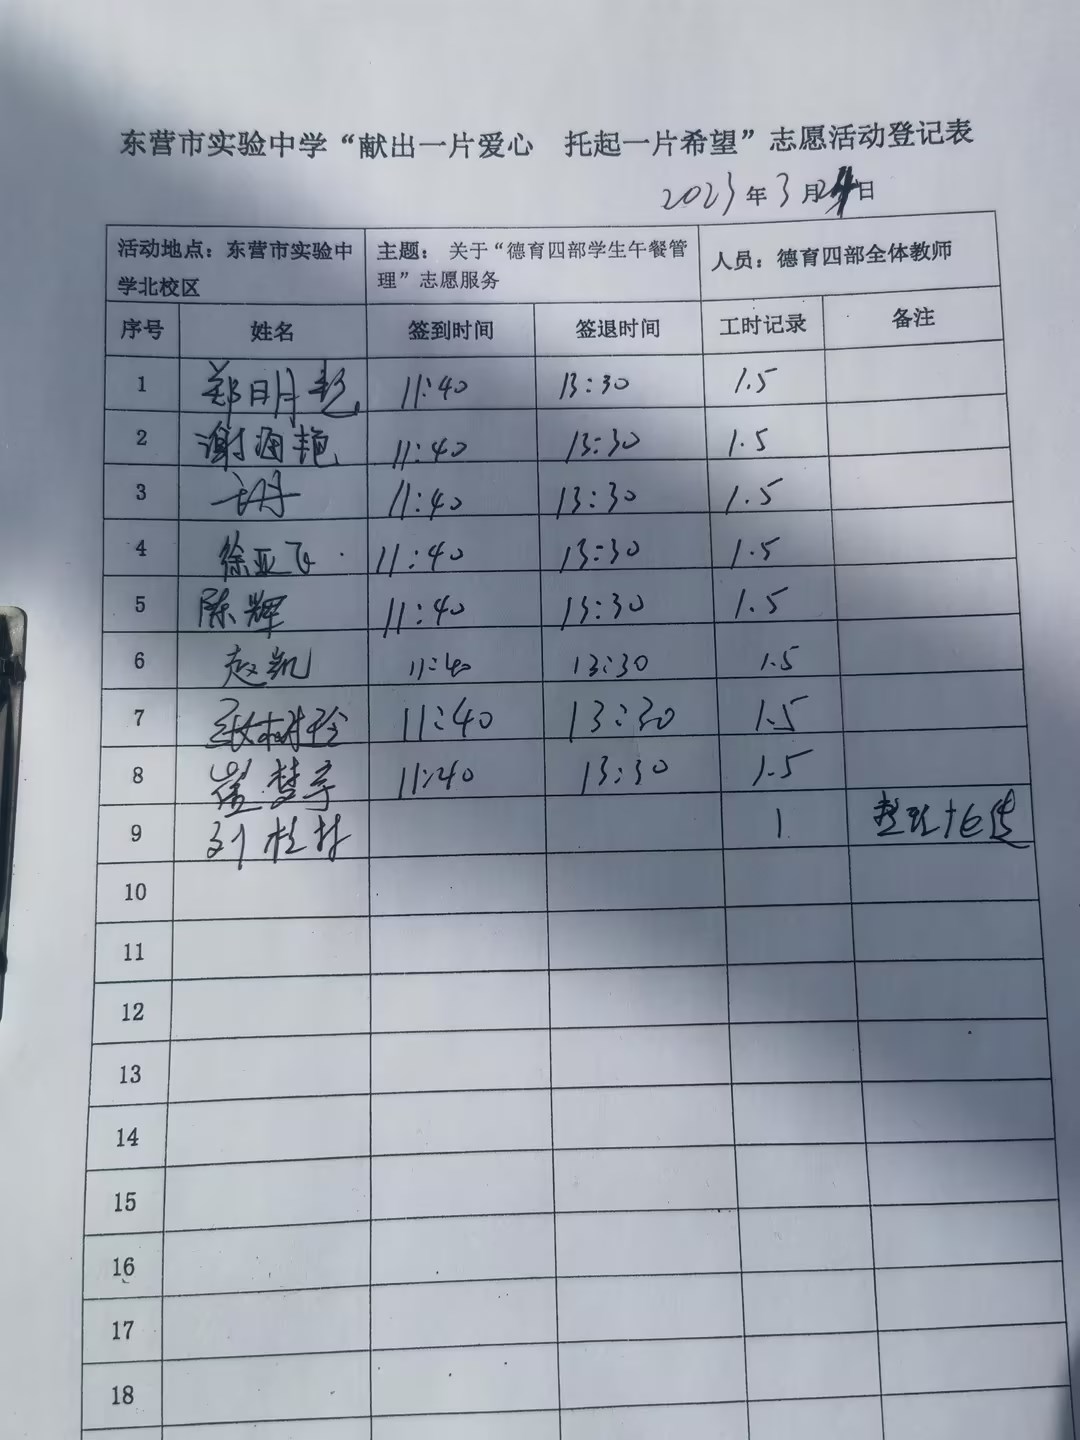 东营市实验中学“献出一片爱心 托起一片希望”志愿活动登记表
2023年3月24日
活动地点：东营市实验中学北校区 主题：关于“德育四部学生午餐管理”志愿服务 人员：德育四部全体教师
序号 姓名 签到时间 签退时间 工时记录 备注
1 郑明艳 11:40 13:30 1.5
2 谢海艳 11:40 13:30 1.5
3 11:40 13:30 1.5
4 徐亚飞 11:40 13:30 1.5
5 陈辉 11:40 13:30 1.5
6 赵凯 11:40 13:30 1.5
7 11:40 13:30 1.5
8 崔梦宇 11:40 13:30 1.5
9 刘桂林 1 整理+上传
10
11
12
13
14
15
16
17
18